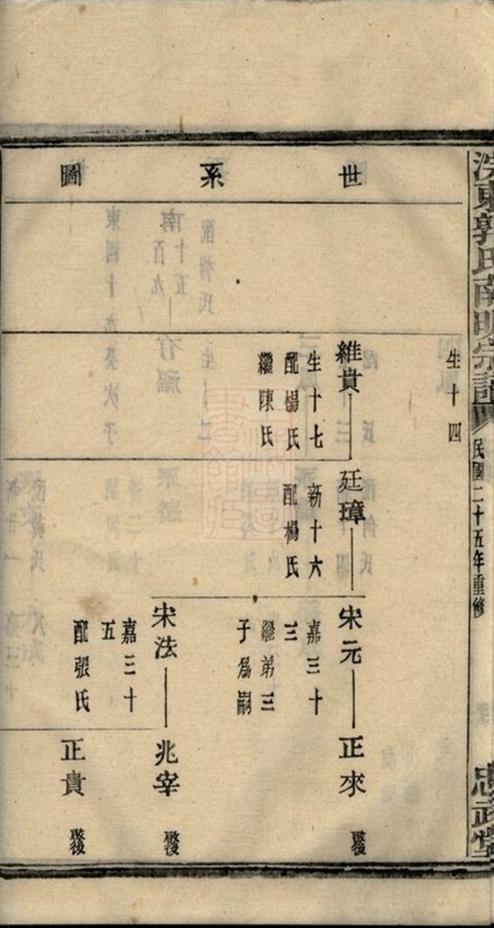 東郭氏南明宗譜
民國二十五年重修
忠武堂
世系圖
生十四
維貴
生十七
配楊氏
繼陳氏
廷璋
新十六
配楊氏
宋元
嘉三十
三
繼弟三
子爲嗣
正來
後
宋法
嘉三十
五
配張氏
兆宰
後
正貴
後